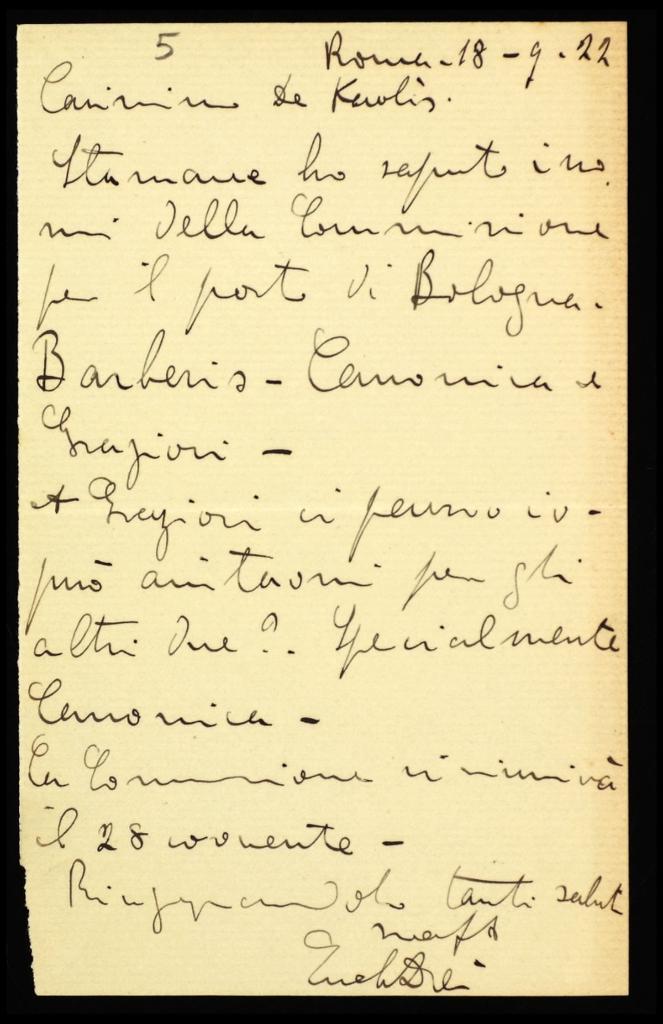 5 Roma - 18 - 9 - 22
Carissimo De Karolis.
Stamane ho saputo i no
mi della Commissione
per il posto di Bologna.
Barberis - Canonica e
Grazioni -
A Grazioni ci penso io -
può aiutarmi per gli
altri due?. Specialmente
Canonica -
La Commissione si riunirà
il 28 corrente -
Ringraziandolo tanti saluti